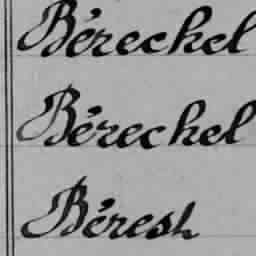 Béreckel
Béreckel
Béresh